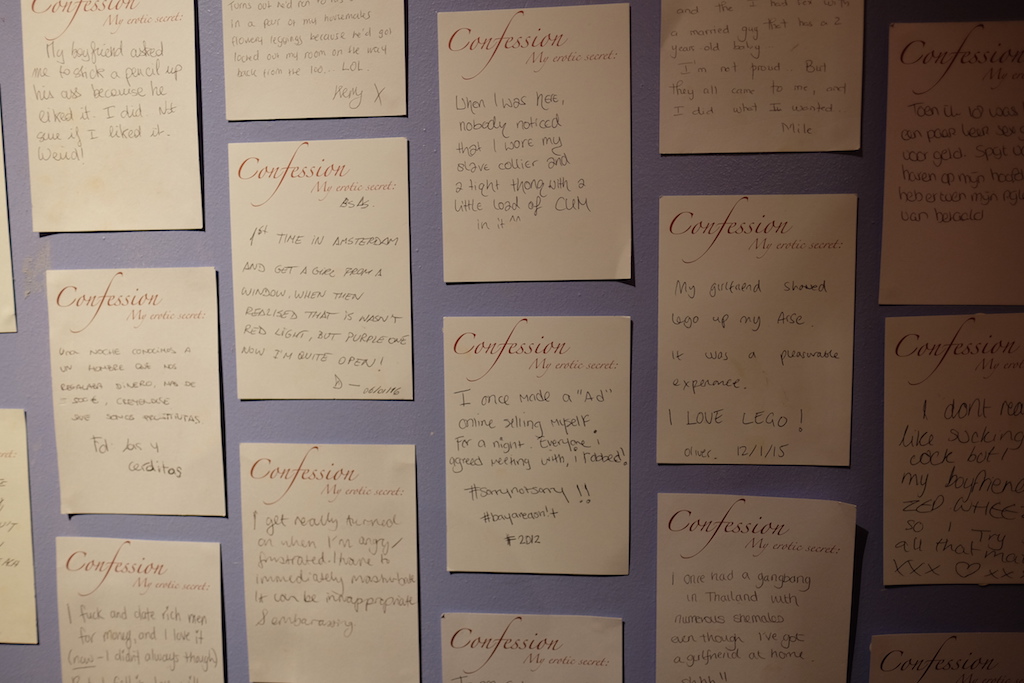 Confession
My erotic secret:
My boyfriend asked
me to stick a pencil up
his ass because he
liked it. I did. Not
sure if I liked it.
Weird!
Confession
My erotic secret:
UNA NOCHE CONOCIMOS A
UN HOMBRE QUE NOS
REGALABA DINERO, MAS DE
500€, CREYENDOSE
QUE SOMOS PROSTITUTAS.
Fd: bis y
cerditas
Confession
My erotic secret:
I fuck and date rich men
for money, and I love it
(now - I didn't always though)
in a pair of my homemade
flowery leggings because he'd got
locked out my room on the way
back from the loo,... LOL.
Kerry X
Confession
My erotic secret:
BSAS.
1st TIME IN AMSTERDAM
AND GET A GIRL FROM A
WINDOW. WHEN THEN
REALISED THAT IS WASN'T
RED LIGHT, BUT PURPLE ONE
NOW I'M QUITE OPEN!
D -
Confession
My erotic secret:
I get really turned
on when I'm angry/
frustrated. I have to
immediately masturbate
It can be innappropriate
& embarassing
Confession
My erotic secret:
When I was here,
nobody noticed
that I wore my
slave collier and
a tight thong with a
little load of CUM
in it ^^
Confession
My erotic secret:
I once made a "Ad"
online selling myself.
For a night. Everyone i
agreed meeting with, i robbed!
#sorrynotsorry !!
#bayareashit
# 2012
Confession
My erotic secret:
and the I had sex with
a married guy that has a 2
year old baby
I'm not proud.. But
they all came to me, and
I did what I wanted.
Mile
Confession
My erotic secret:
My girlfriend shoved
lego up my Arse.
It was a pleasurable
experience.
I LOVE LEGO!
oliver. 12/1/15
Confession
My erotic secret:
I once had a gangbang
in Thailand with
numerous shemales
even though I've got
a girlfriend at home.
Confession
My erotic
Toen ik 18 was
een paar keer sex
voor geld.
op mijn hoofd
heb er een mijn
van betaald
Confession
My erotic
I dont rea
like sucking
cock but I
my boyfriend
so I Try
all that
xxx ♡ xxx
Confession
My erotic